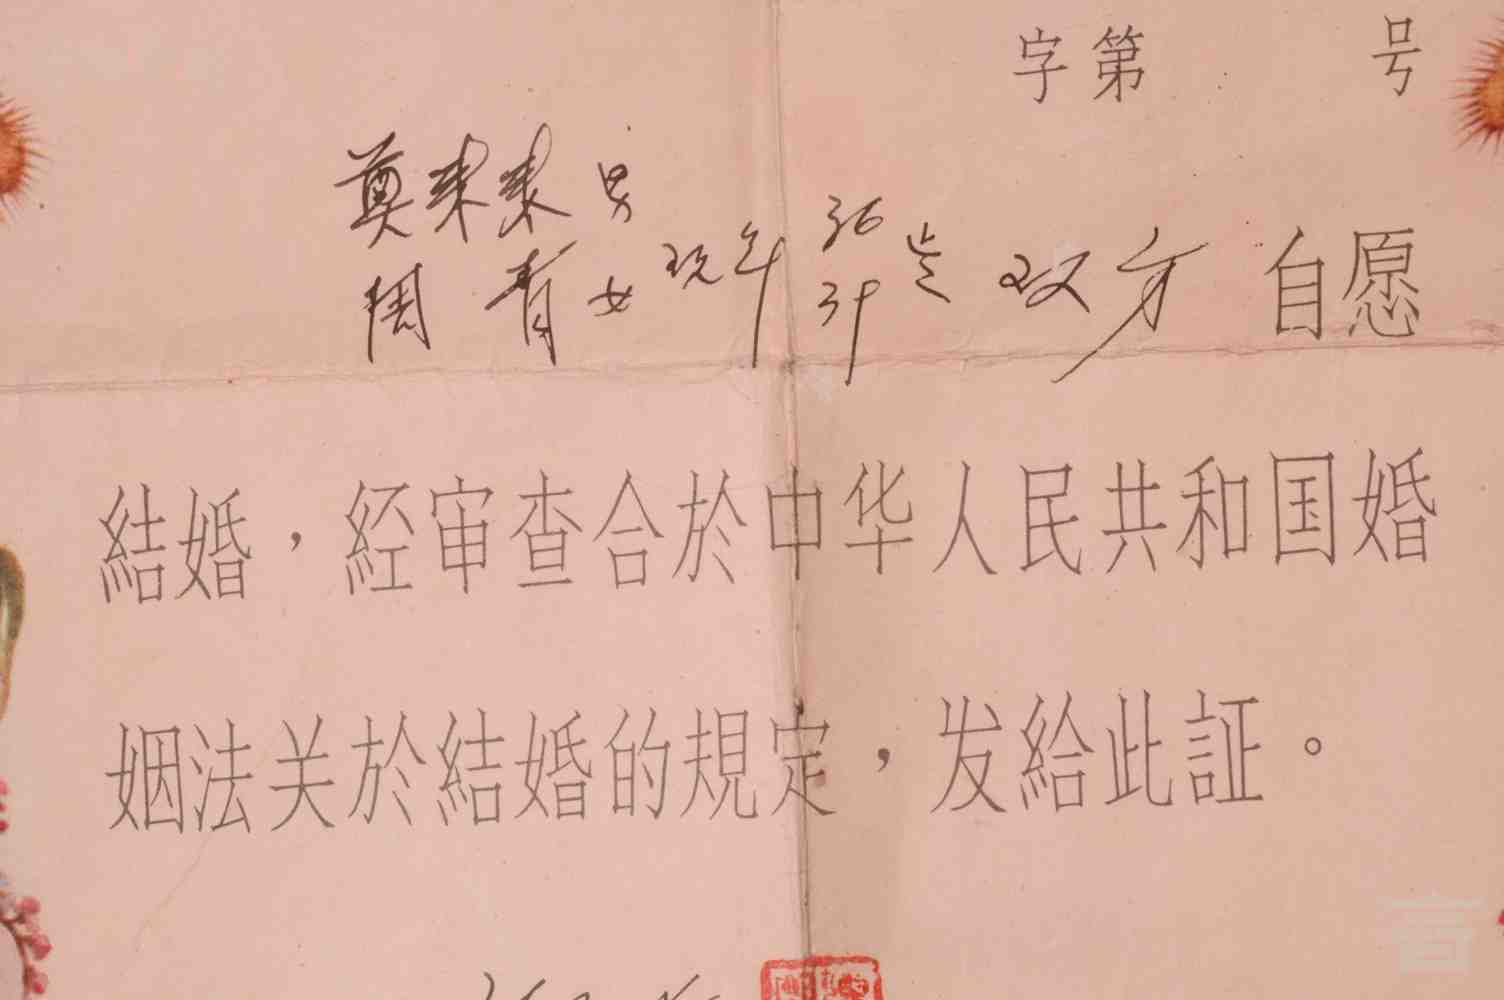 字第 号
男
周青 女 現年 36 31 岁 双方 自愿
結婚，経审查合於中华人民共和国婚
姻法关於結婚的規定，发給此証。